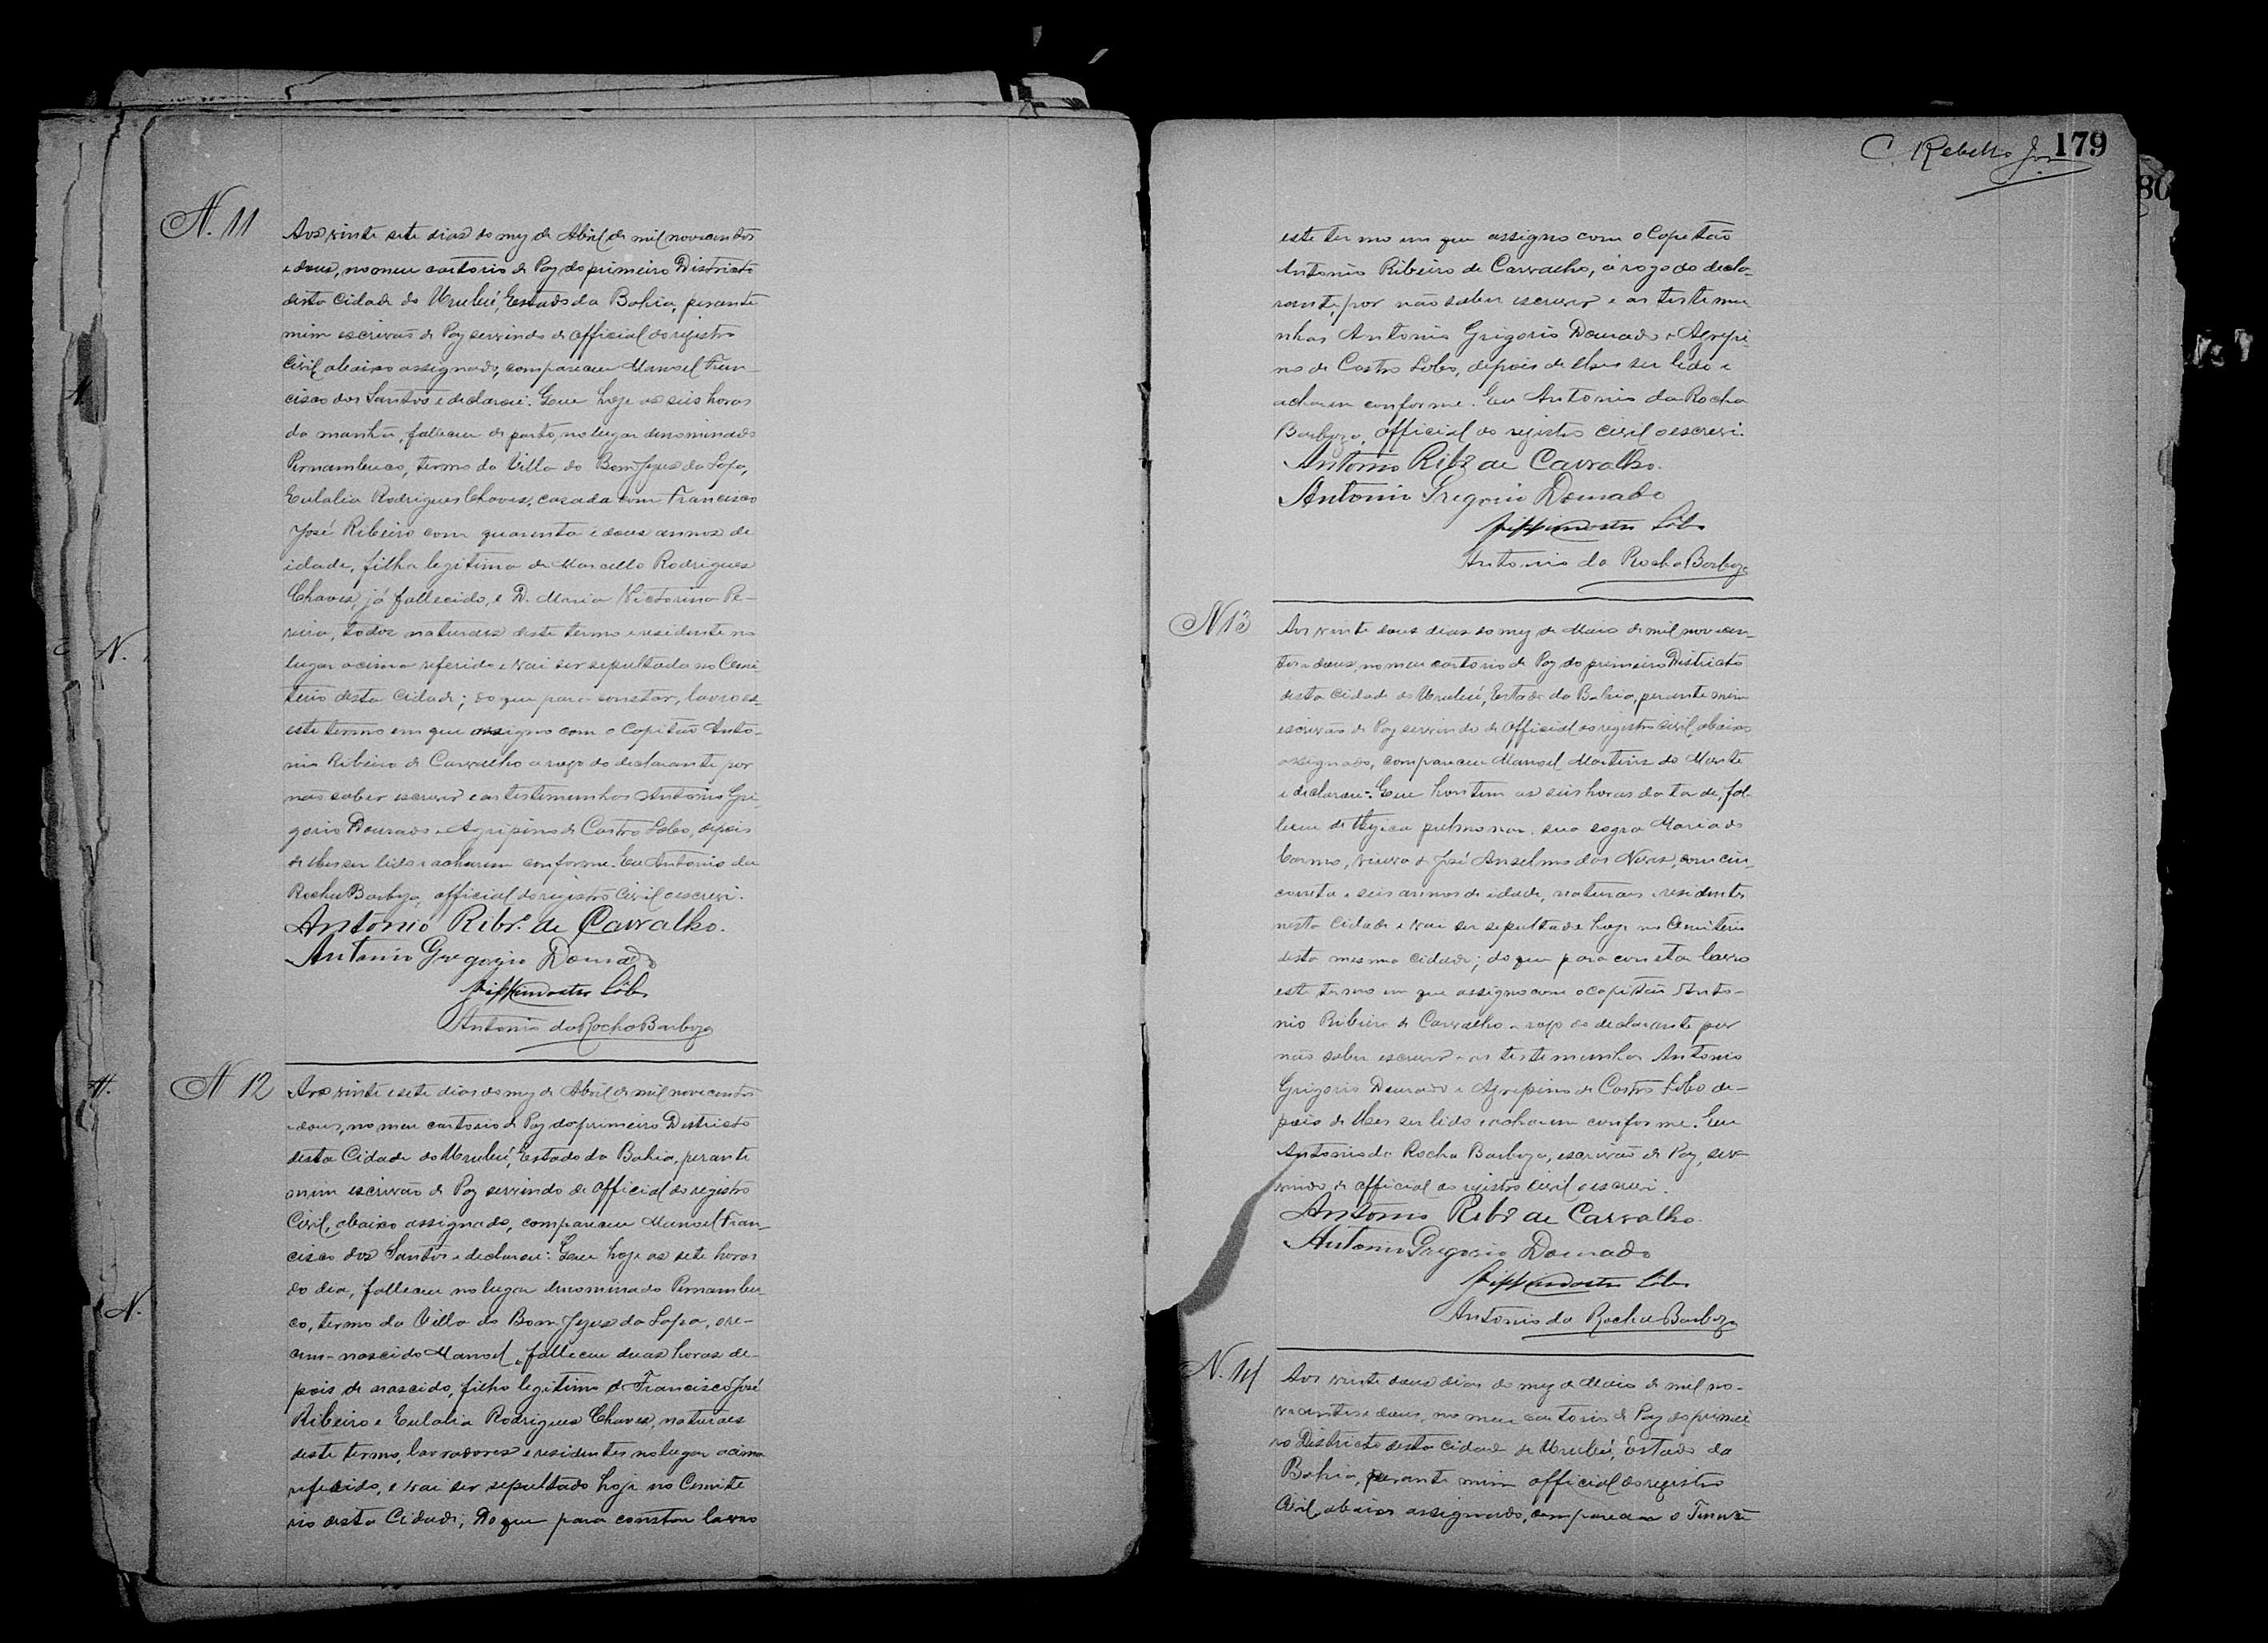 N. 11
Aos vinte sete dias do mez de Abril de mil novecentos
e dous, no meu cartorio de Paz do primeiro Districto
desta Cidade do Urubú, Estado da Bahia, perante
mim escrivão de Paz servindo de official do registro
Civil abaixo assignado, compareceu Manoel Fran-
cisco dos Santos e declarou: Que hoje as seis horas
da manhã, falleceu de parto, no lugar denominado
Pernambuco, termo da Villa do Bom Jezus da Lapa,
Eulalia Rodrigues Chaves, casada com Francisco
José Ribeiro com quarenta e dous annos de
idade, filha legitima de Marcello Rodrigues
Chaves, já fallecido, e D. Maria Victorina Pe-
reira, todos naturaes deste termo e residente no
lugar acima referido e vai ser sepultada no Cemi-
terio desta Cidade; do que para constar, lavro es-
este termo em que assigno com o Capitão Anto-
nio Ribeiro de Carvalho a rogo do declarante por
não saber escrever e as testemunhas Antonio Gri-
gorio Dourado e Agripino de Castro Lobo, depois
de lhes ser lido e acharem conforme. Eu Antonio da
Rocha Barboza, official do registro Civil o escrevi.
Antonio Ribr.º de Carvalho.
Antonio Gregorio Dourado
Lôbo
Antonio da Rocha Barboza
N 12
Aos vinte e sete dias do mez de Abril de mil novecentos
e dous, no meu cartorio de Paz do primeiro Districto
desta Cidade do Urubú, Estado da Bahia, perante
mim escrivão de Paz servindo de official do registro
Civil, abaixo assignado, compareceu Manoel Fran-
cisco dos Santos e declarou: Que hoje as sete horas
do dia, falleceu no lugar denominado Pernambu-
co, termo da Villa do Bom Jezus da Lapa, o re-
cem-nascido Manoel, falleceu duas horas de-
pois de nascido, filho legitimo de Francisco José
Ribeiro e Eulalia Rodrigues Chaves, naturaes
deste termo, lavradores e residentes no lugar acima
referido, e vai ser sepultado hoje no Cemite
rio desta Cidade; Do que para constar lavro
C. Rebello Jor
179
este termo em que assigno com o Capitão
Antonio Ribeiro de Carvalho, á rogo do decla-
rante, por não saber escrever e as testemu
nhas Antonio Grigorio Dourado e Agripi-
no de Castro Lobo, depois de lhes ser lido e
acharem conforme. Eu Antonio da Rocha
Barboza, official do registro civil o escrevi.
Antonio Ribr de Carvalho.
Antonio Gregorio Dourado
Lôbo
Antonio da Rocha Barboza
N 13
Aos vinte dous dias do mez de Maio de mil novecen-
tos e dous, no meu cartorio de Paz do primeiro Districto
desta cidade do Urubú, Estado da Bahia, perante mim
escrivão de Paz servindo de official do registro civil, abaixo
assignado, compareceu Manoel Martins do Monte
e declarou: Que hontem as seis horas da tarde, fal-
leceu de thyzica pulmonar, sua sogra Maria do
Carmo, viuva de José Anselmo das Neves, com cin-
coenta e seis annos de idade, naturaes e residentes
nesta Cidade e vai ser sepultada hoje no Cemiterio
desta mesma cidade; do que para constar lavro
este termo em que assigno com o capitão Anto-
nio Ribeiro de Carvalho a rogo do declarante por
não saber escrever e as testemunhas Antonio
Grigorio Dourado e Agripino de Castro Lobo de-
pois de lhes ser lido e acharem conforme. Eu
Antonio da Rocha Barboza, escrivão de Paz, ser-
vindo de official do registro civil o escrevi.
Antonio Ribr de Carvalho.
Antonio Gregorio Dourado
Lôbo
Antonio da Rocha Barboza
N. 14
Aos vinte dous dias do mez de Maio de mil no-
vecentos e dous, no meu cartorio de Paz do primei
ro Districto desta Cidade do Urubú, Estado da
Bahia, perante mim official do registro
Civil abaixo assignado, compareceu o Tenente